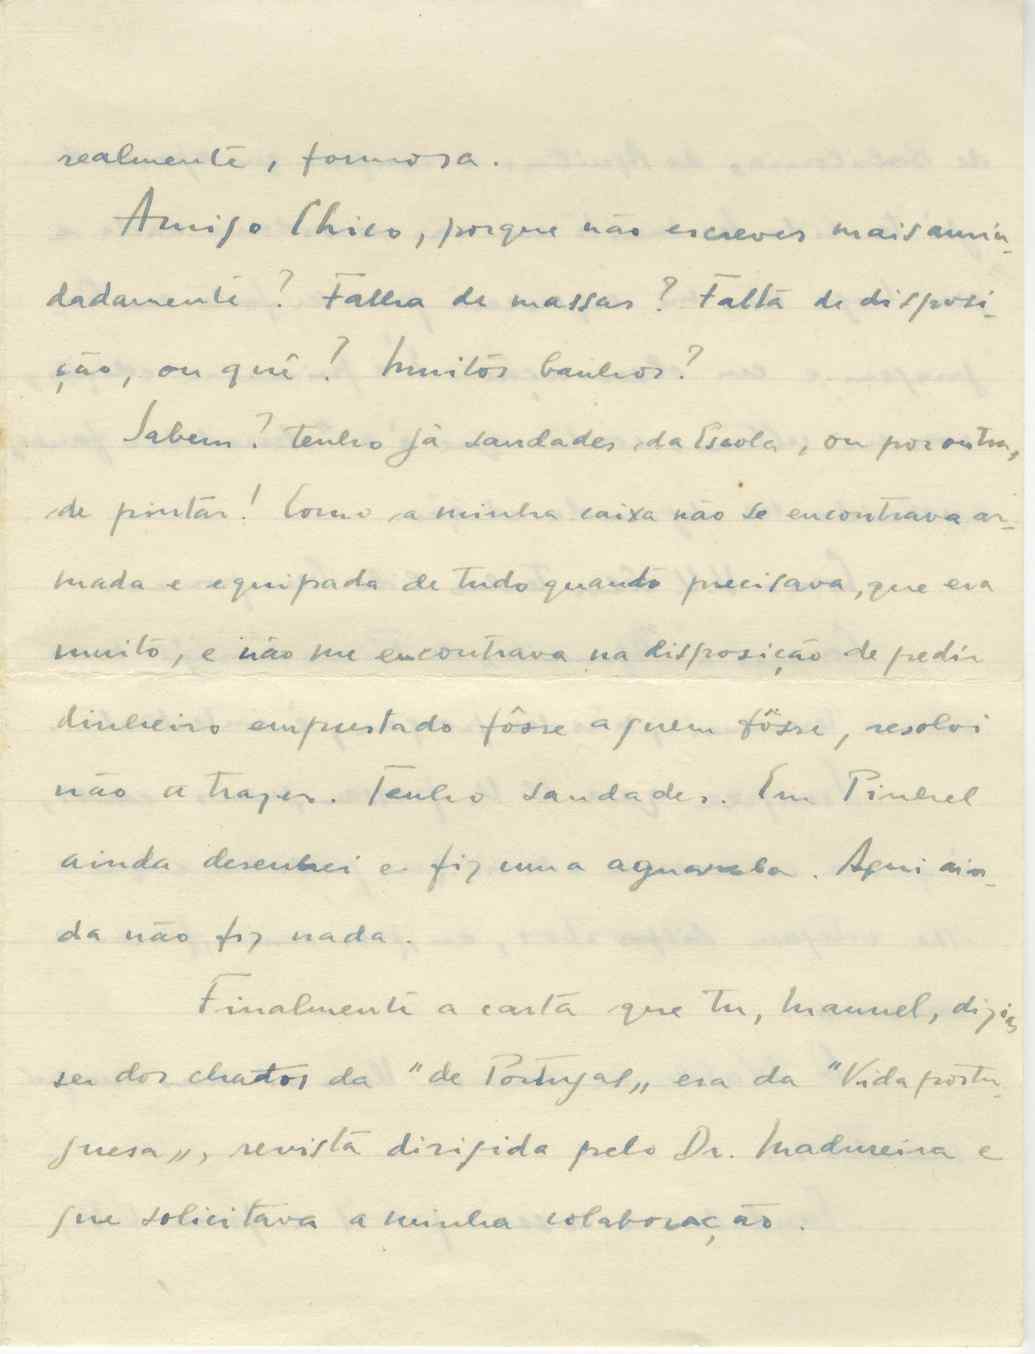 realmente, formosa.
Amigo Chico, porque não escreves mais amiu-
dadamente? Falha de massas? Falta de disposi-
ção, ou quê? Muitos banhos?
Sabem? Tenho já saudades da Escola, ou por outra,
de pintar! Como a minha caixa não se encontrava ar-
mada e equipada de tudo quanto precisava, que era
muito, e não me encontrava na disposição de pedir
dinheiro emprestado fôsse a quem fôsse, resolvi
não a trazer. Tenho saudades. Em Pinhel
ainda desenhei e fiz uma aguarela. Aqui ain-
da não fiz nada.
Finalmente a carta que tu, Manuel, dizias
ser dos chatos da "de Portugal„ era da "Vida portu-
guesa„, revista dirigida pelo Dr. Madureira e
que solicitava a minha colaboração.